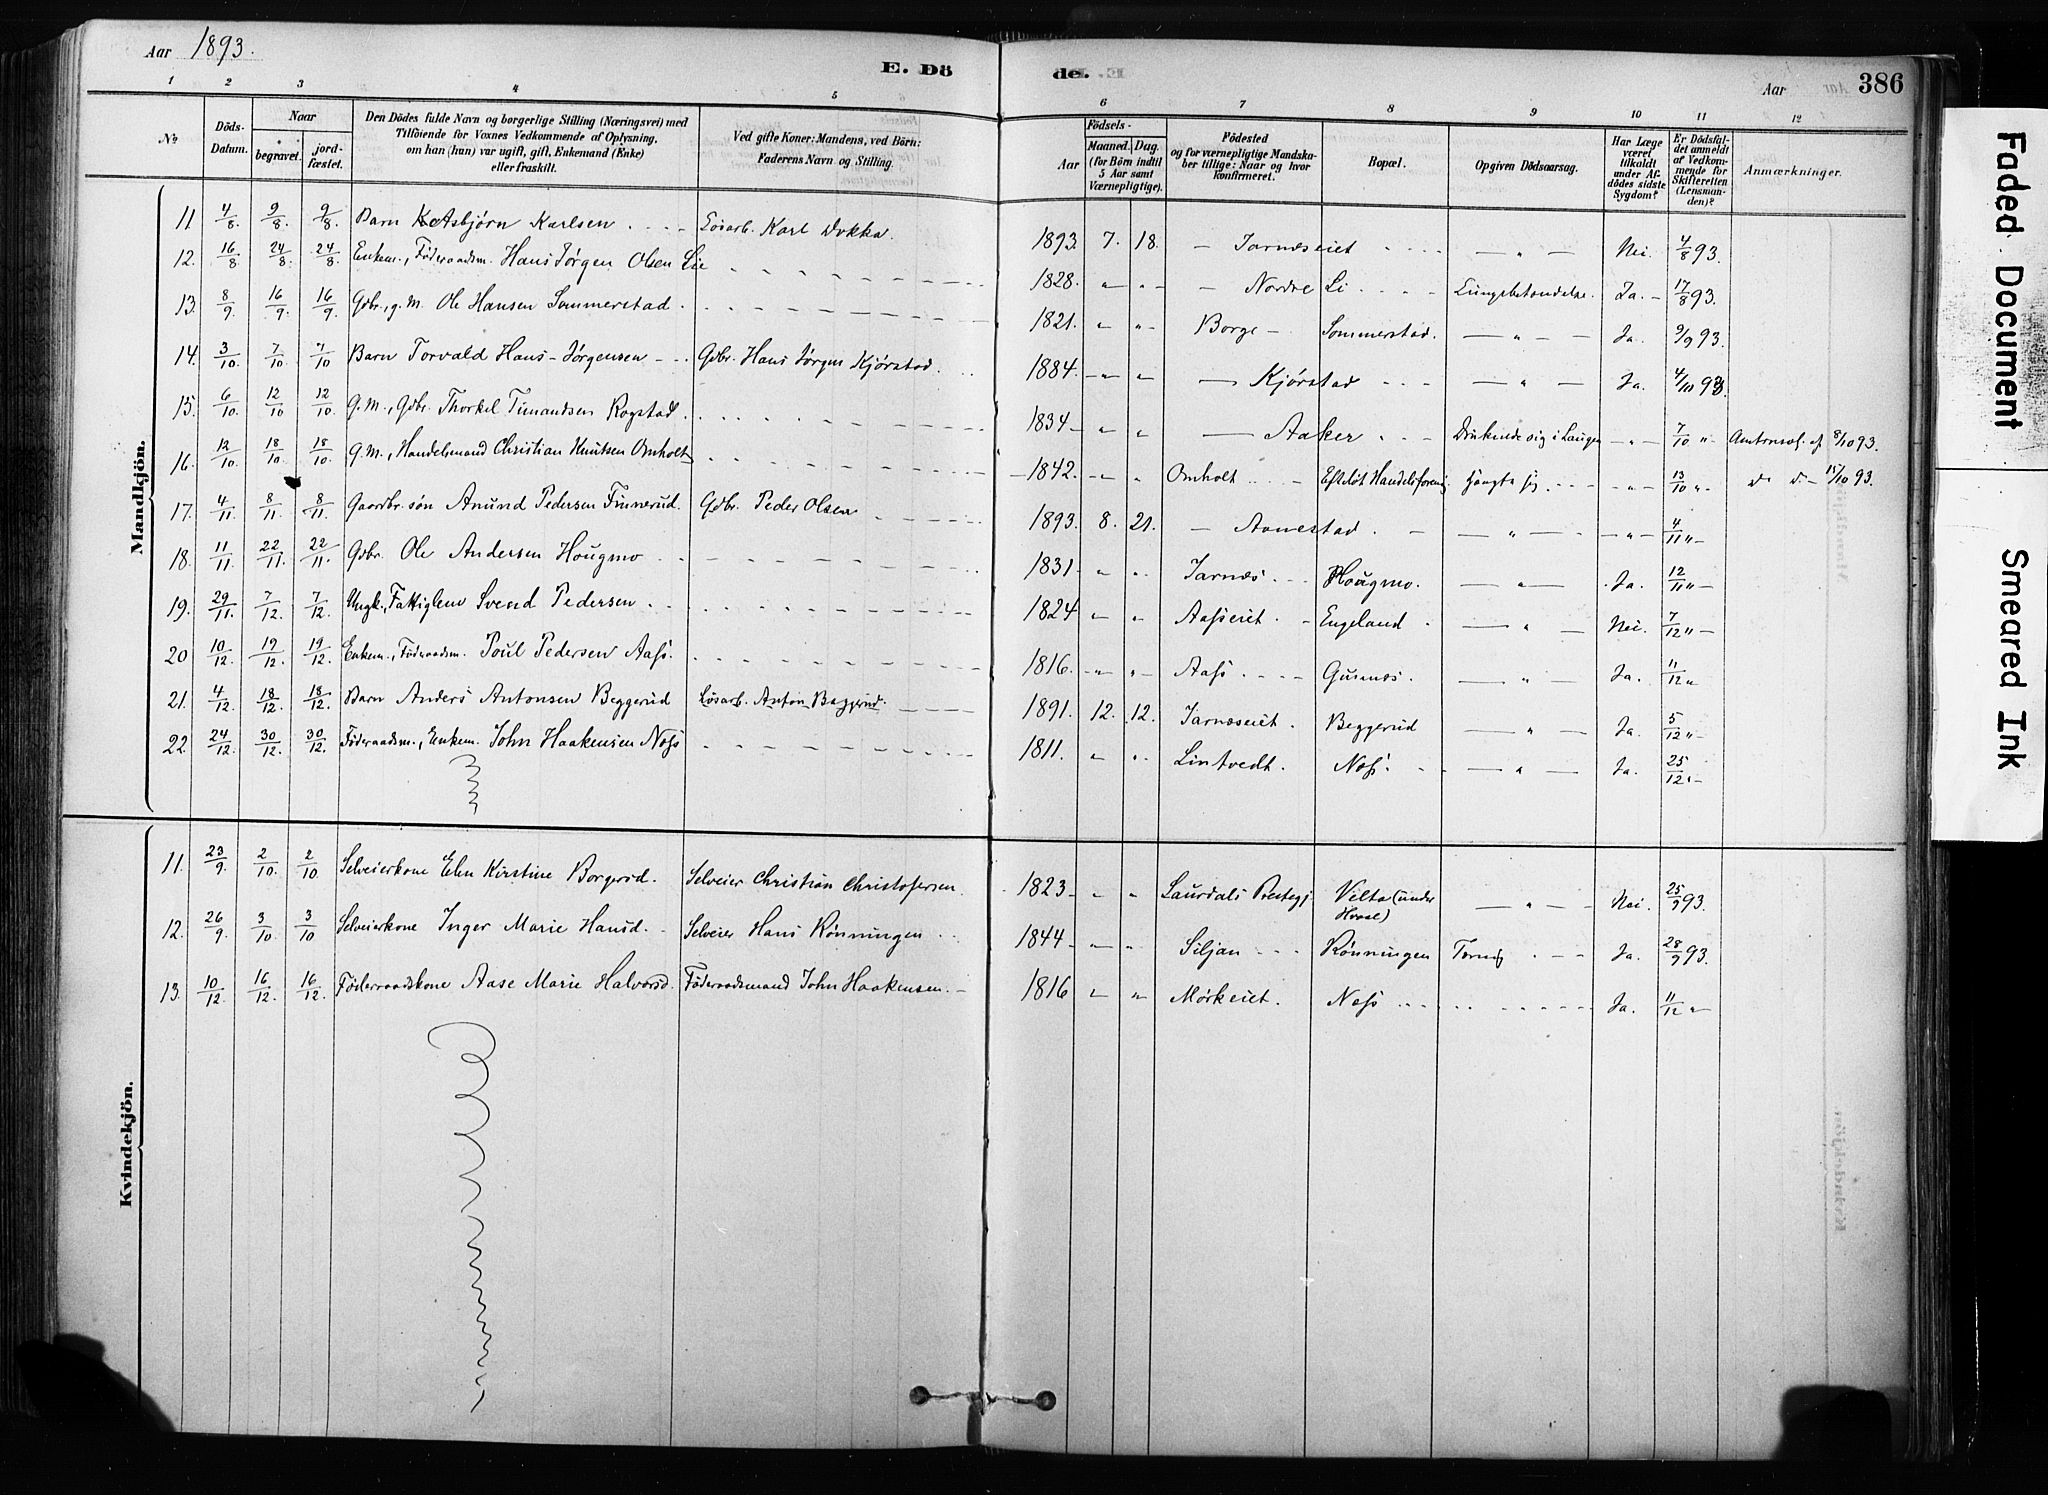 Aar 1893.
E. Dö de.
Aar
386
1 2 3 4 5 6 7 8 9 10 11 12
No.
Döds-Datum.
Naar
begravet.
jord-fæstet.
Den Dödes fulde Navn og borgerlige Stilling (Næringsvei) med
Tilföiende for Voxnes Vedkommende af Oplysning,
om han (hun) var ugift, gift, Enkemand (Enke)
eller fraskilt.
Ved gifte Koner: Mandens, ved Börn:
Faderens Navn og Stilling.
Födsels-
Aar
Maaned. Dag.
(for Börn indtil
5 Aar samt
Værnepligtige).
Födested
og for værnepligtige Mandska-
ber tillige: Naar og hvor
konfirmeret.
Bopæl.
Opgiven Dödsaarsag.
Har Læge
været
tilkaldt
under Af-
dödes sidste
Sygdom?
Er Dödsfal-
det anmeldt
af Vedkom-
mende for
Skifteretten
(Lensman-
den)?
Anmærkninger.
Mandkjön.
11 4/8 9/8 9/8 Barn Asbjørn Karlsen Løsarb. Karl Dokka. 1893. 7. 18. Jarnæseiet — " — Nei. 4/8 93.
12. 16/8 24/8 24/8 Enkem., Föderaadsm. Hans Jørgen Olsen Lie 1828. " " Nordre Li Lungebetændelse. Ja. 17/8 93.
13. 8/9 16/9 16/9 Gdbr., g. M. Ole Hansen Sommerstad. 1821. " " Borge Sommerstad. — " — Ja. 9/9 93.
14. 3/10 7/10 7/10 Barn Torvald Hans-Jørgensen Gdbr. Hans Jørgen Kjørstad. 1884. " " Kjørstad — " — Ja. 4/10 93.
15. 6/10 12/10 12/10 G. M., Gdbr. Thorkel Timandsen Rogstad. 1834 " " Aaker Druknede sig i Laagen " 7/10 " 8/10 93.
16. 12/10 18/10 18/10 G. M., Handelsmand Christian Knutsen Omholt 1842. " " Omholt Efteløt Handelsforenig. hængte sig " 13/10 " 15/10 93.
17. 4/11 8/11 8/11 Gaardbr. søn Amund Pedersen Finnerud. Gdbr. Peder Olsen 1893. 8. 21. Aanestad. — " — " 4/11 "
18. 11/11 22/11 22/11 Gdbr. Ole Andersen Hougmo 1831. " " Jarnæs Hougmo. — " — Ja. 12/11 "
19. 29/11 7/12 7/12 Ungk., Fattiglem Svend Pedersen 1824 " " Aaseiet. Engeland — " — Nei. 7/12 "
20 10/12 19/12 19/12 Enkem., Föderaadsm. Poul Pedersen Aass. 1816. " " Aass Gusnæs. — " — Ja. 11/12 "
21. 4/12 18/12 18/12 Barn Anders Antonsen Beggerud Løsarb. Anton Beggerud. 1891. 12. 12. Jarnæseiet. Beggerud — " — Ja. 5/12 "
22. 24/12 30/12 30/12 Föderaadsm., Enkem. John Haakensen Næss 1811. " " Lintvedt. Næss. — " — Ja. 25/12 "
Kvindekjön.
11. 23/9 2/10 2/10 Selveierkone Elen Kirstine Borgersd. Selveier Christian Christofersen 1823 " " Laurdals Prestegj. Velta (under Hvaal) — " — Nei. 25/9 93.
12. 26/9 3/10 3/10 Selveierkone Inger Marie Hansd. Selveier Hans Rønningen 1844 " " Siljan Rønningen Ja. 28/9 93.
13. 10/12 16/12 16/12 Föderaadskone Aase Marie Halvorsd. Föderaadsmand John Haakensen. 1816 " " Mørkeiet. Næss Ja. 11/12 "
Faded Document
Smeared Ink